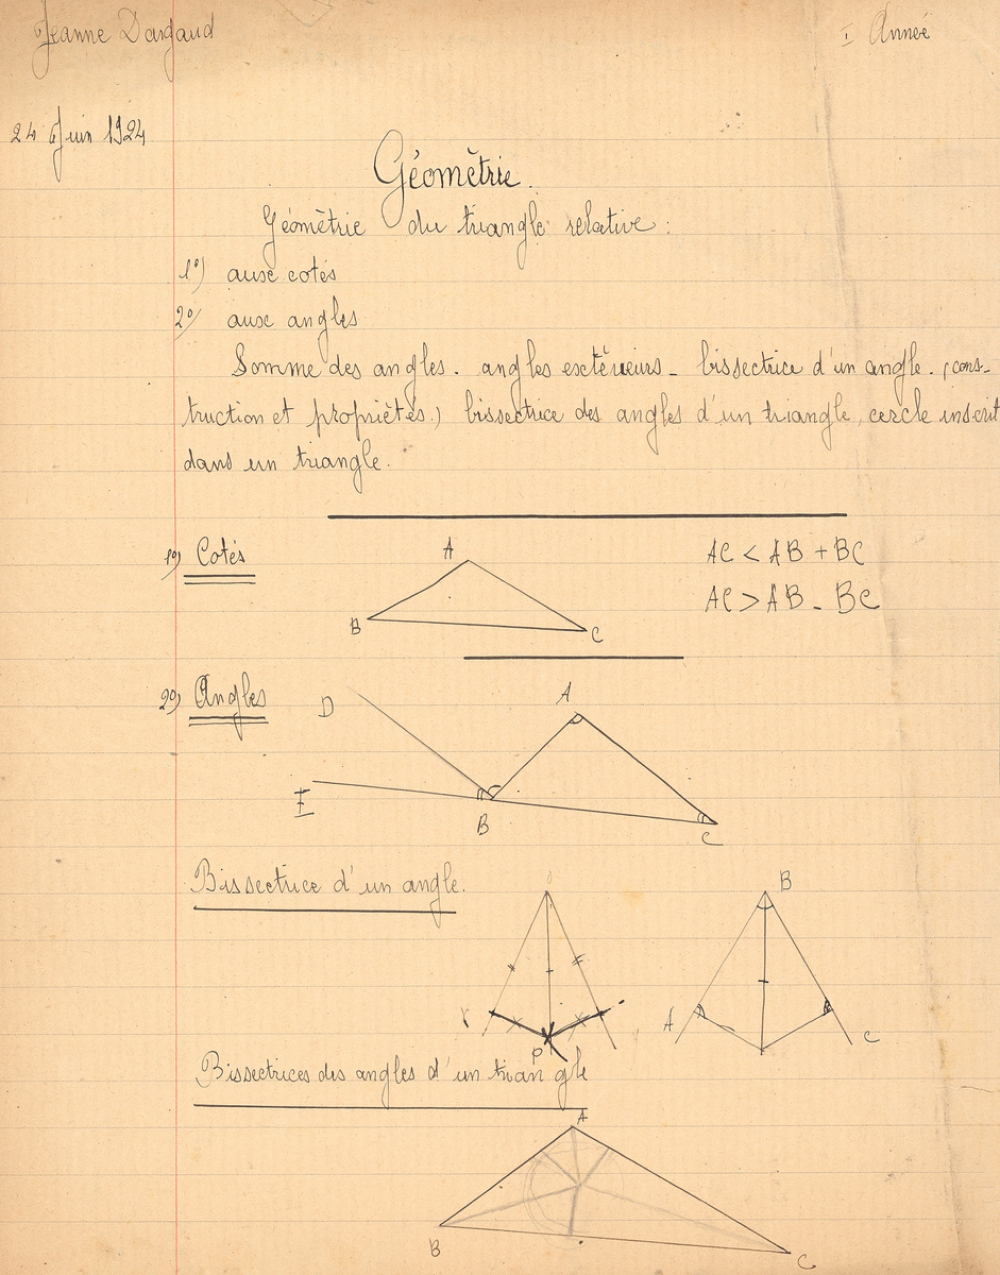 Jeanne Dargaud
I Année
24 Juin 1924
Géomètrie.
Géomètrie du triangle relative :
1°) aux cotés
2°) aux angles
Somme des angles. angles extèrieurs - bissectrice d'un angle. (cons-
truction et propriètés.) bissectrice des angles d'un triangle, cercle inscrit
dans un triangle.
1°) Cotés
A
B
C
AC < AB + BC
AC > AB - BC
2°) Angles
D
A
E
B
C
Bissectrice d'un angle.
B
A
C
P
Bissectrices des angles d'un triangle
A
B
C